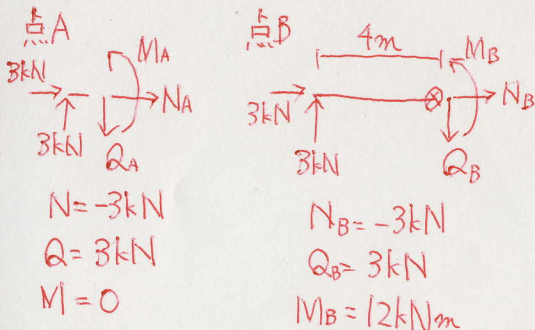 点A
3kN
MA
NA
3kN
QA
N=-3kN
Q=3kN
M=0
点B
4m
MB
3kN
NB
3kN
QB
NB=-3kN
QB=3kN
MB=12kNm